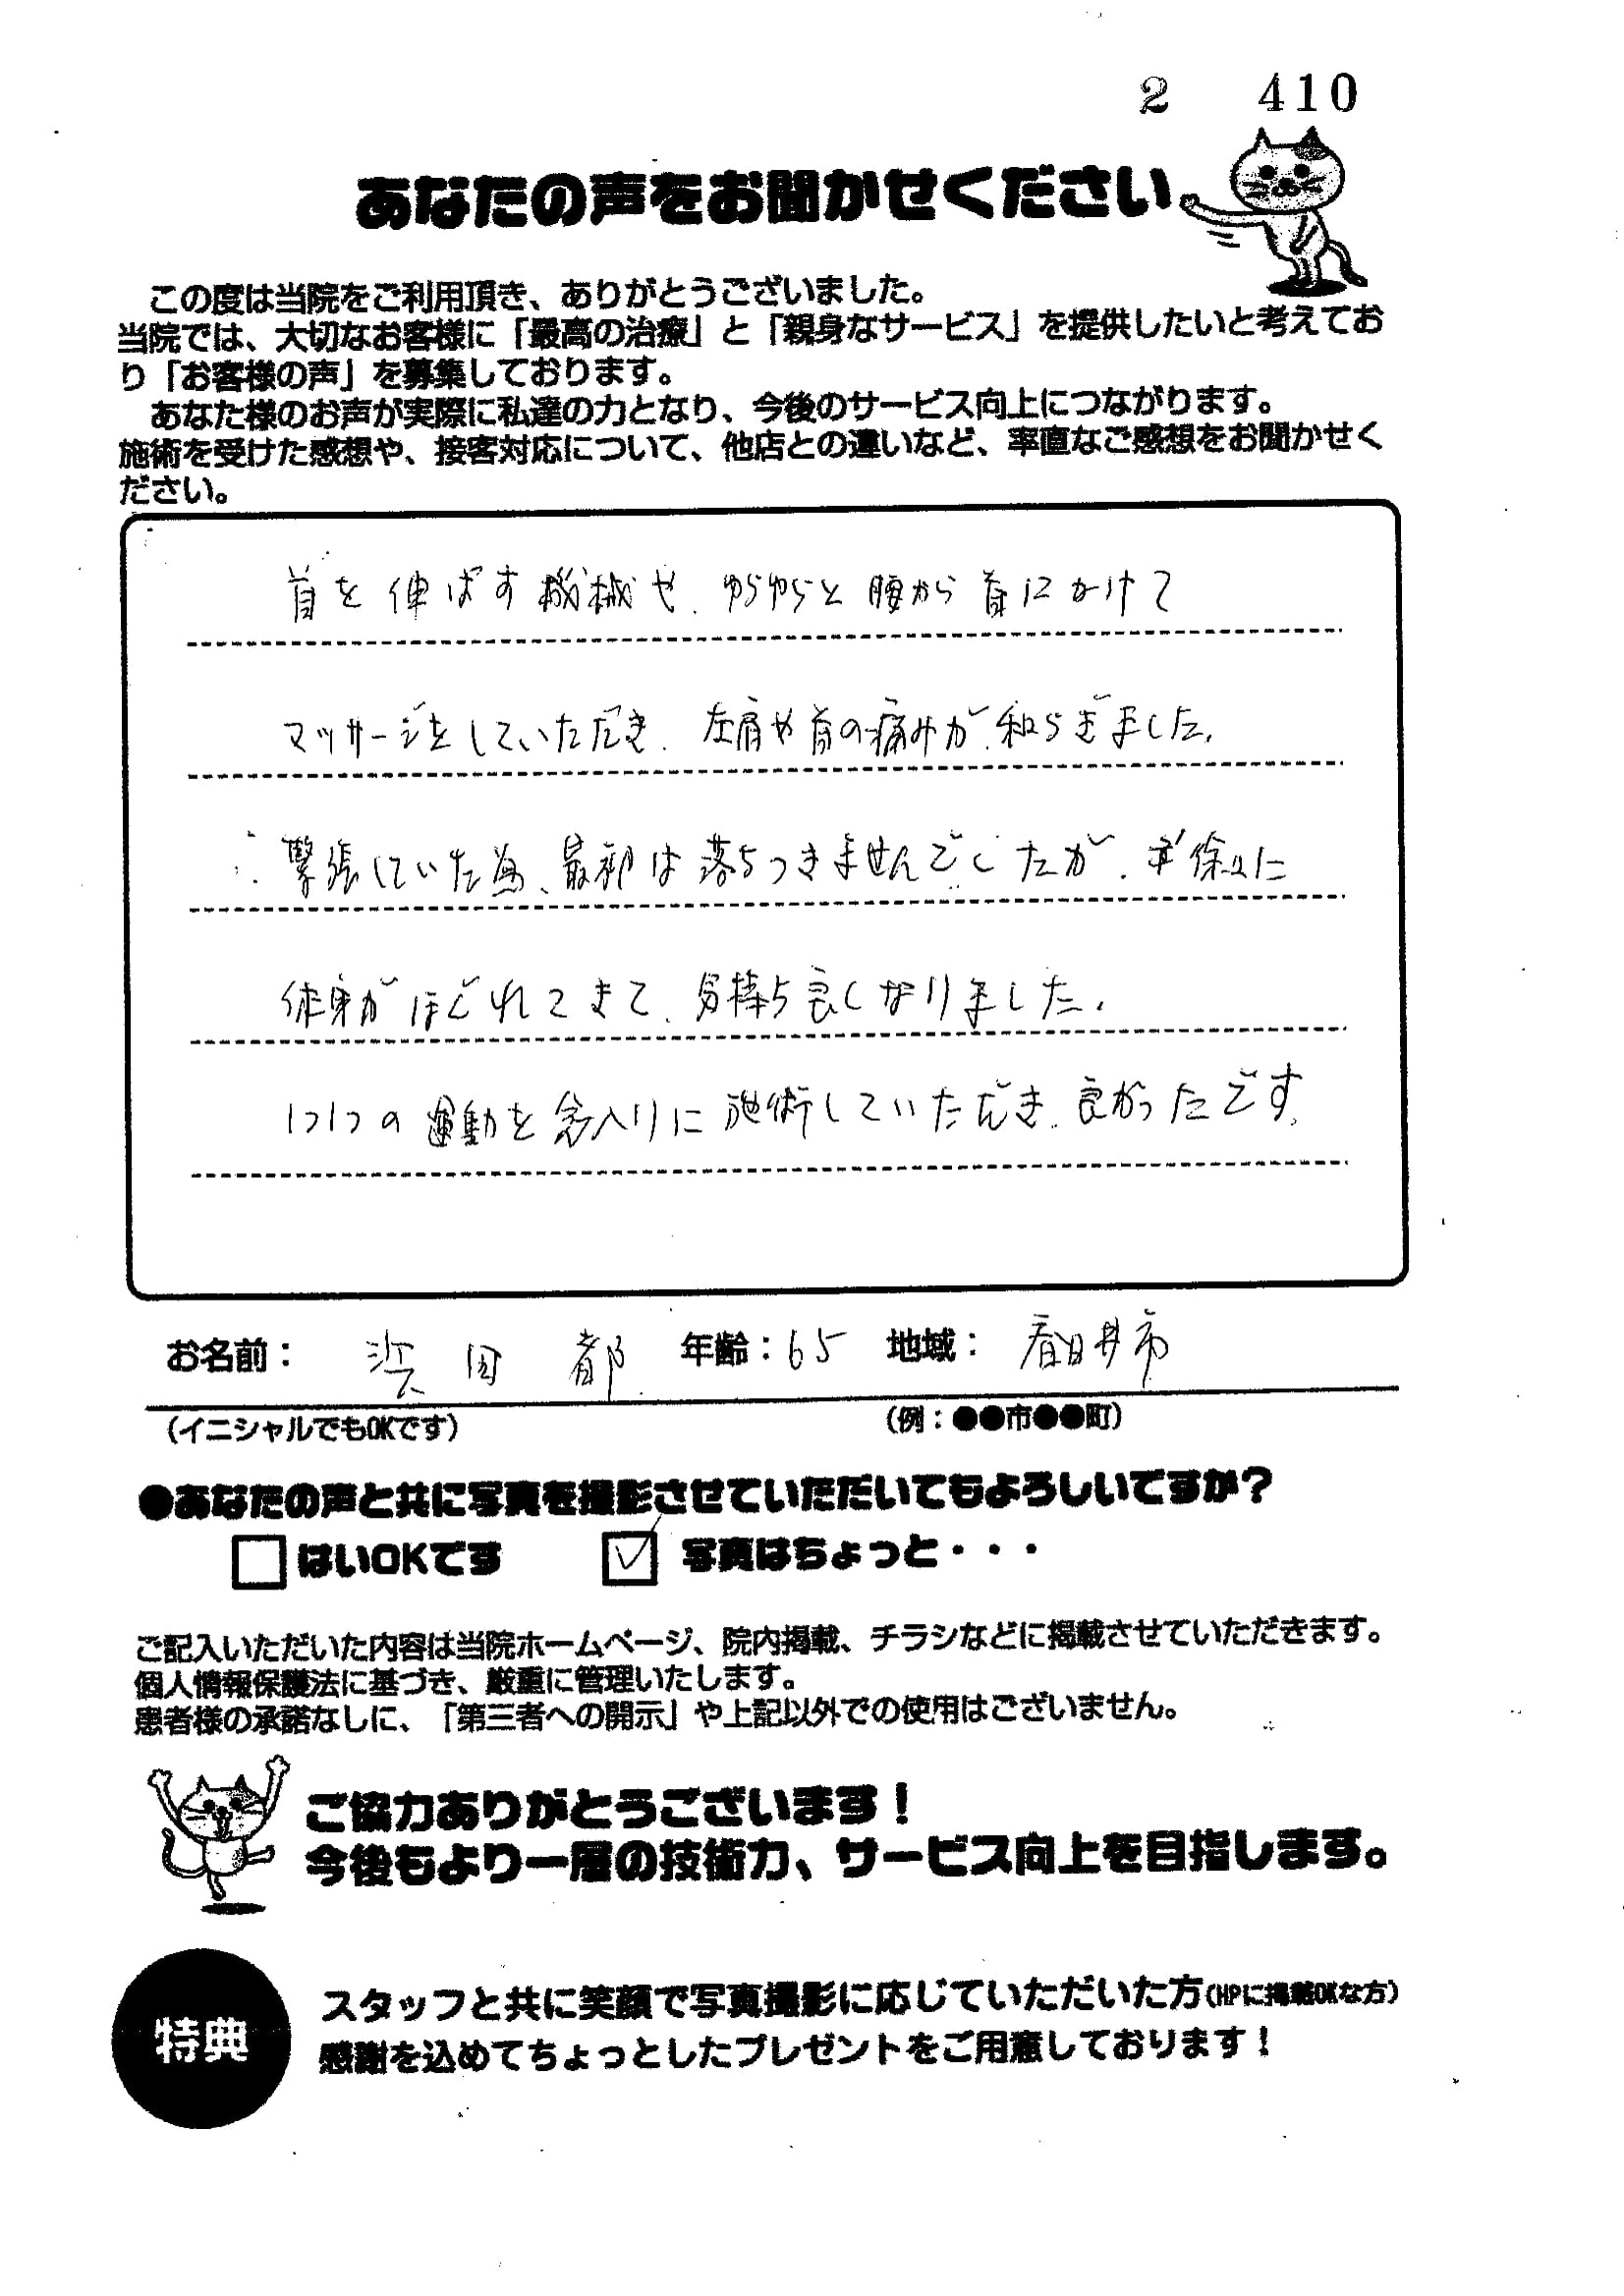 2 410
あなたの声をお聞かせください
この度は当院をご利用頂き、ありがとうございました。
当院では、大切なお客様に「最高の治療」と「親身なサービス」を提供したいと考えてお
り「お客様の声」を募集しております。
あなた様のお声が実際に私達の力となり、今後のサービス向上につながります。
施術を受けた感想や、接客対応について、他店との違いなど、率直なご感想をお聞かせく
ださい。
首を伸ばす機械や、ゆらゆらと腰から首にかけて
マッサージをしていただき、左肩や首の痛みが、和らぎました。
緊張していた為、最初は落ちつきませんでしたが、徐々に
体身がほぐれてきて、気持ち良くなりました。
1つ1つの運動を念入りに施術していただき、良かったです。
お名前： 浜田 都 年齢：65 地域： 春日井市
（イニシャルでもOKです） （例：●●市●●町）
●あなたの声と共に写真を撮影させていただいてもよろしいですか？
はいOKです 写真はちょっと・・・
ご記入いただいた内容は当院ホームページ、院内掲載、チラシなどに掲載させていただきます。
個人情報保護法に基づき、厳重に管理いたします。
患者様の承諾なしに、「第三者への開示」や上記以外での使用はございません。
ご協力ありがとうございます！
今後もより一層の技術力、サービス向上を目指します。
特典
スタッフと共に笑顔で写真撮影に応じていただいた方（HPに掲載OKな方）
感謝を込めてちょっとしたプレゼントをご用意しております！